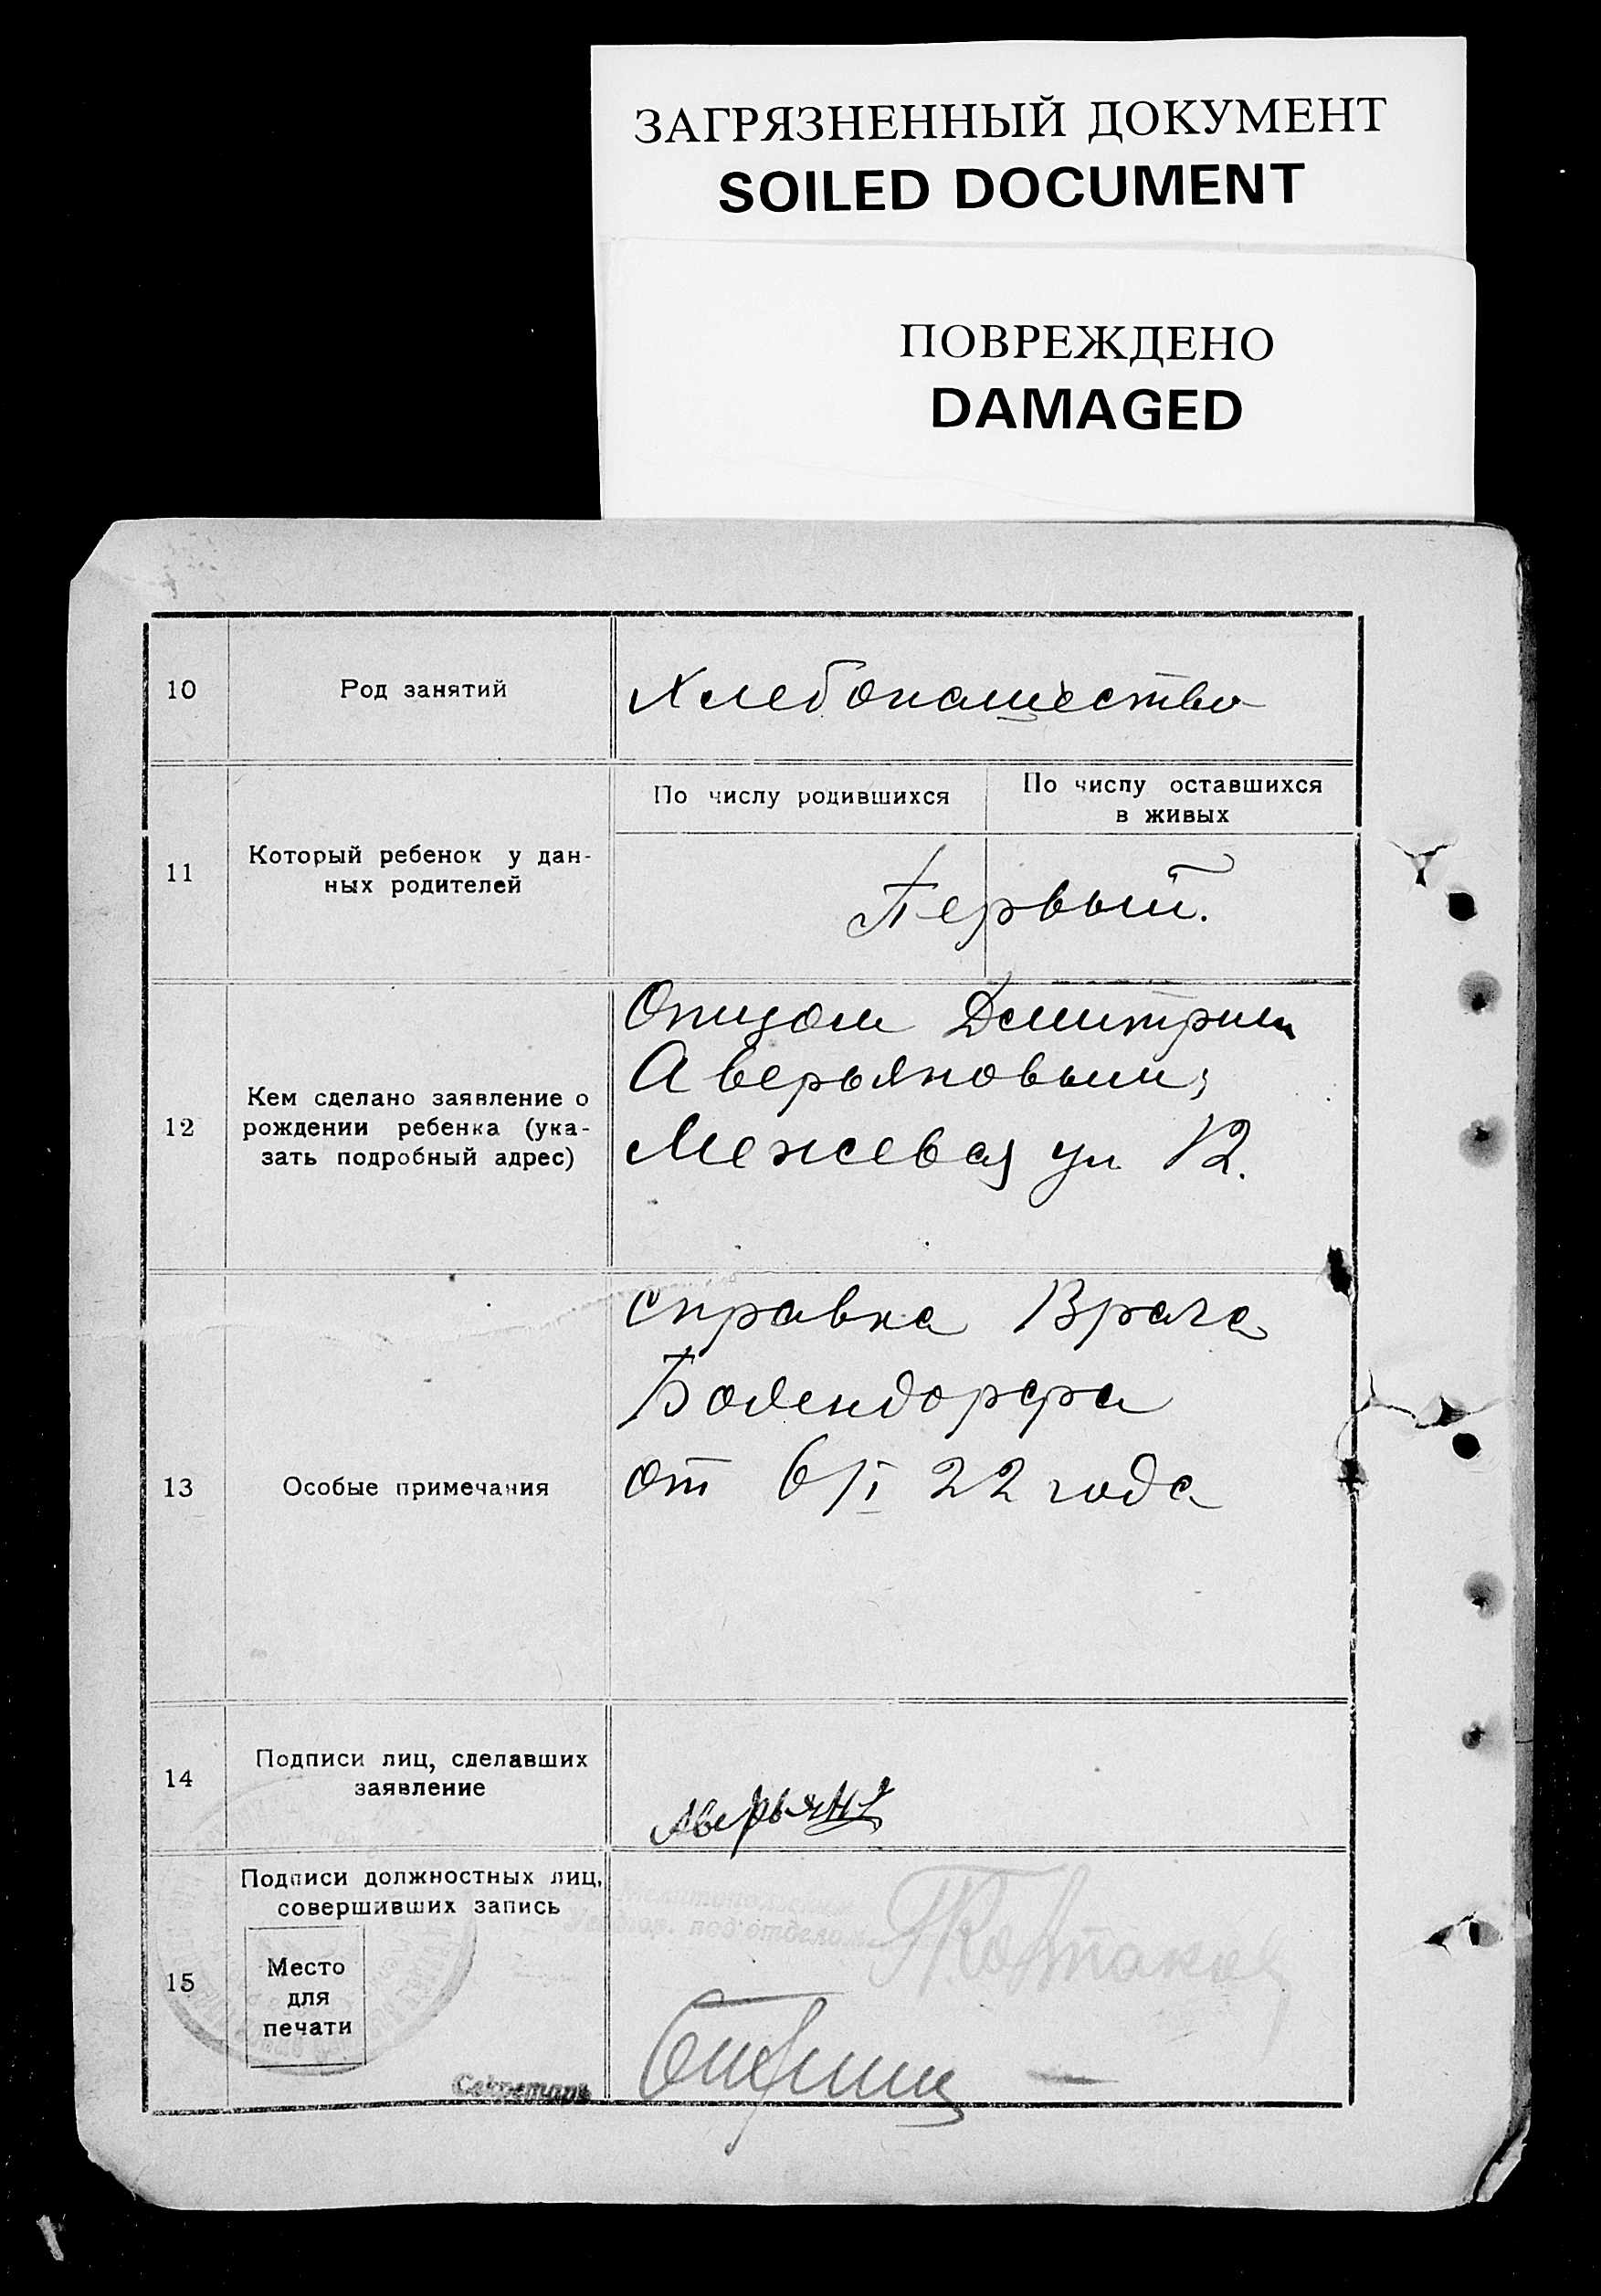 ЗАГРЯЗНЕННЫЙ ДОКУМЕНТ
SOILED DOCUMENT
ПОВРЕЖДЕНО
DAMAGED
10
Род занятий
Хлебопашество
11
Который ребенок у дан-
ных родителей
По числу родившихся
По числу оставшихся
в живых
Первый.
12
Кем сделано заявление о
рождении ребенка (ука-
зать подробный адрес)
Отцом Дмитрием
Аверьяновым,
Межевая ул 12.
13
Особые примечания
справка Врача
от 6/I 22 года
14
Подписи лиц, сделавших
заявление
15
Подписи должностных лиц,
совершивших запись
Место
для
печати
подотделом
Секретарь